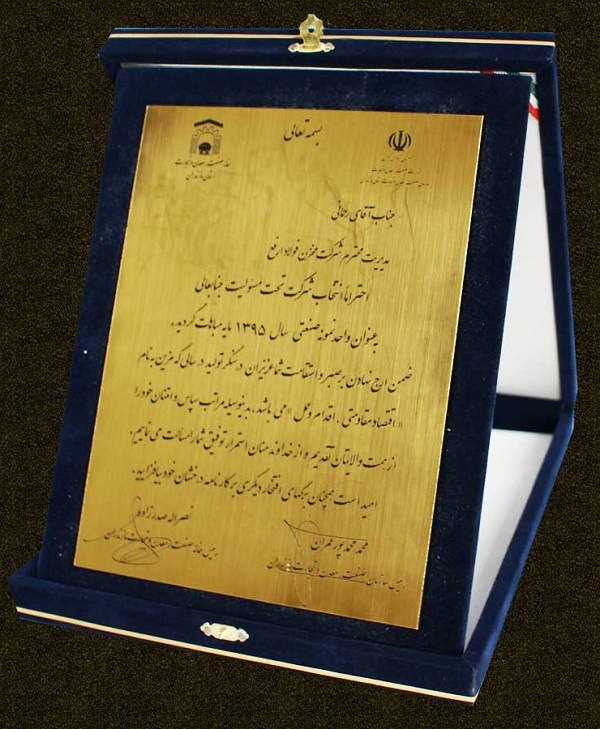 بسمه تعالی
خانه صنعت، معدن و تجارت
استان مازندران
جناب آقای رحمانی
مدیریت محترم شرکت مخزن فولاد رافع
احتراماً انتخاب شرکت تحت مسئولیت جنابعالی
بعنوان واحد نمونه صنعتی سال ۱۳۹۵ مایه مباهات گردید.
ضمن ارج نهادن بر صبر و استقامت شما عزیزان در سنگر تولید در سالی که مزین به نام
«اقتصاد مقاومتی، اقدام و عمل» می باشد، بدینوسیله مراتب سپاس و امتنان خود را
از همت والایتان تقدیم و از خداوند منان استمرار توفیق شما را مسألت می نماییم.
امید است همچنان برگهای افتخار دیگری بر کارنامه درخشان خود بیافزایید.
نصراله صدرزاده
رئیس خانه صنعت، معدن و تجارت مازندران
محمد محمدپور عمران
رئیس سازمان صنعت، معدن و تجارت مازندران